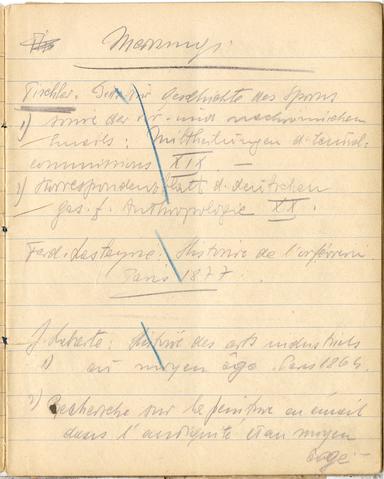 Tischler. Geschichte des
1) sowie der vor- und nachrömischen
Emails: Mittheilungen d. Central-
commissions XIX. —
2) Korrespondenzblatt d. deutschen
Ges. f. Anthropologie XX.
Ferd. Lasteyrie: Histoire de l'orfévrerie
Paris 1877.
J. Labarte: Histoire des arts industriels
1) au moyen âge. Paris 1864.
2) Recherche sur la peinture en émail
dans l'antiquité et au moyen
âge —